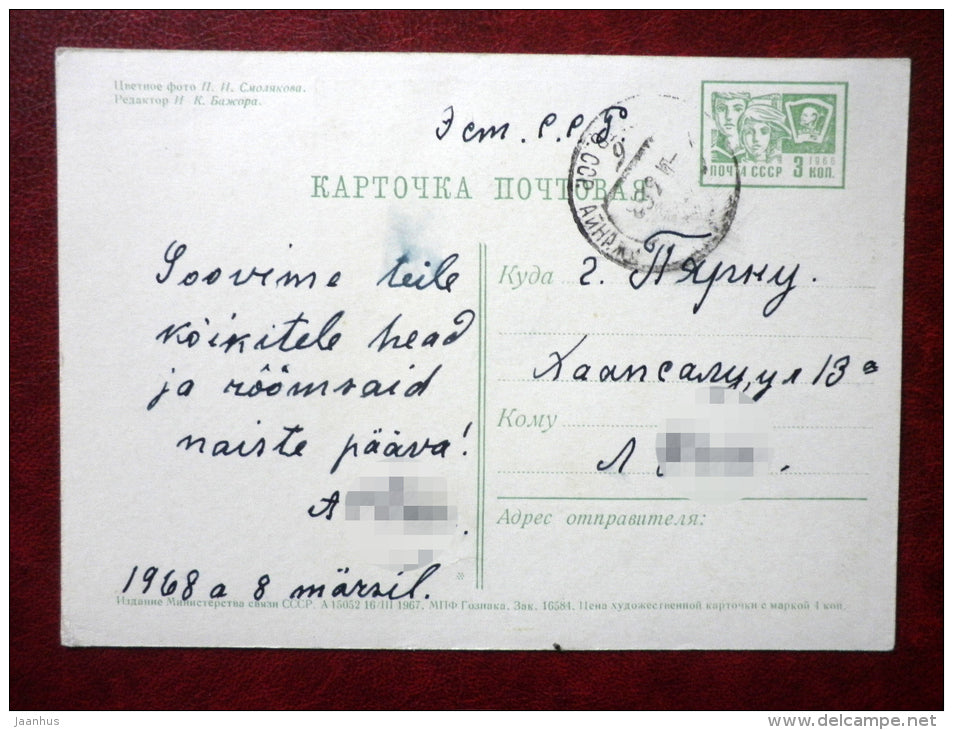 Цветное фото П. И. Смолякова.
Редактор И К. Бажора.
Эст. С.С.Р
1966
ПОЧТА СССР 3 КОП.
КАРТОЧКА ПОЧТОВАЯ
ССР АЙНАЖИ
Soovime teile
kõikitele head
ja rõõmsaid
naiste pääva!
A
1968 a 8 märsil.
Куда г. Пярну.
Хаапсалу, ул 13 а
Кому
Л
Адрес отправителя:
*
Издание Министерства связи СССР. А 15052 16/III 1967. МПФ Гознака. Зак. 16584. Цена художественной карточки с маркой 4 коп.
jaanhus
www.delcampe.net